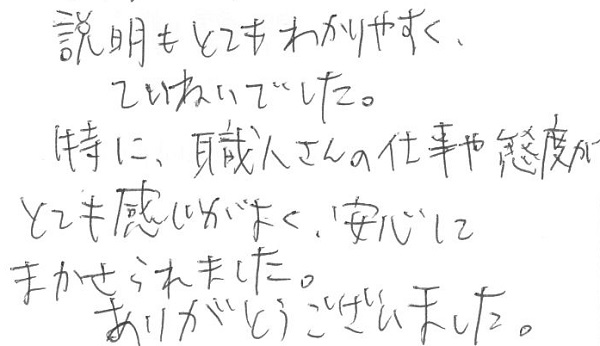 説明もとてもわかりやすく、
ていねいでした。
特に、職人さんの仕事や態度が
とても感じがよく、安心して
まかせられました。
ありがとうございました。